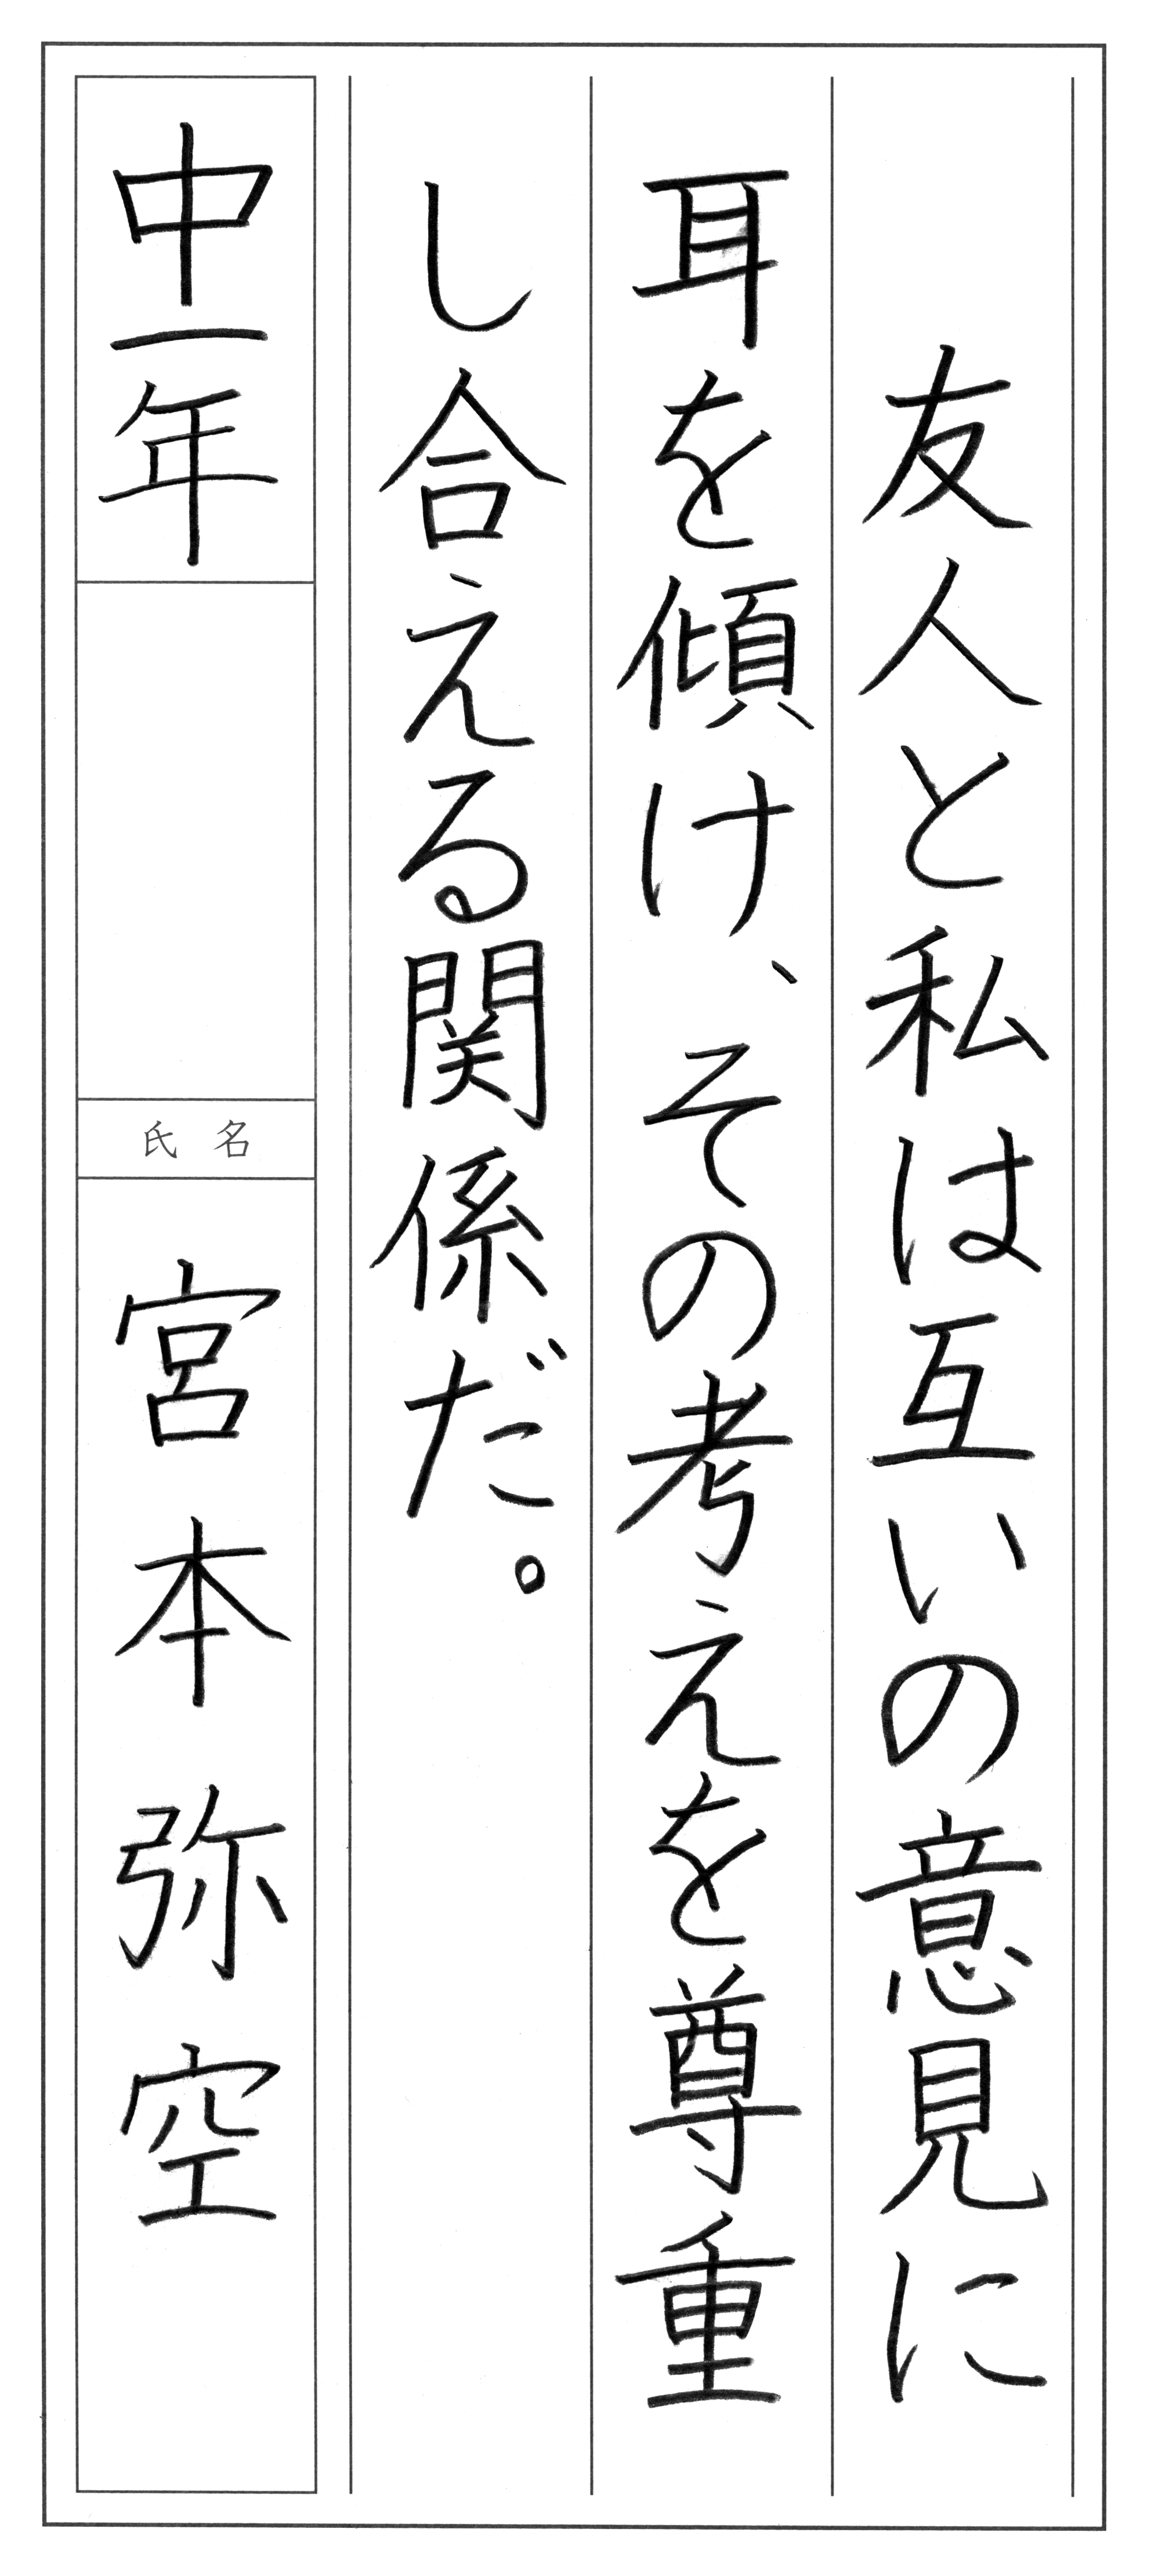 友人と私は互いの意見に
耳を傾け、その考えを尊重
し合える関係だ。
中一年
氏名
宮本弥空